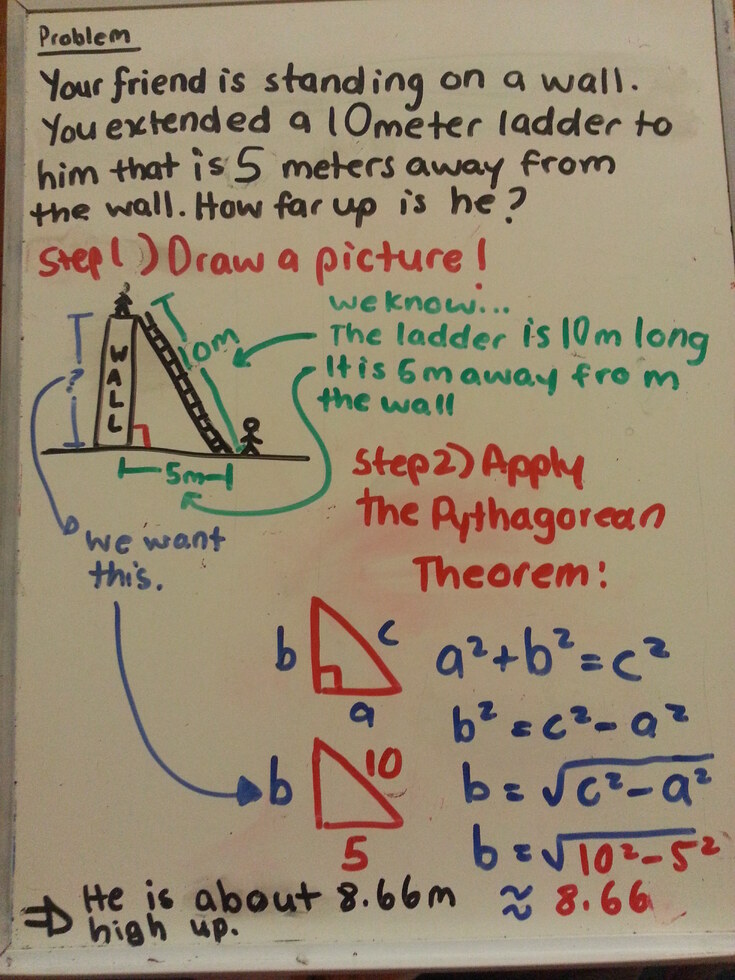 Problem
Your friend is standing on a wall.
You extended a 10meter ladder to
him that is 5 meters away from
the wall. How far up is he?
Step 1) Draw a picture!
we know...
The ladder is 10m long
It is 5m away from
the wall
10m
?
WALL
5m
we want
this.
Step 2) Apply
the Pythagorean
Theorem:
b c
a
a²+b²=c²
b² = c²-a²
b 10
5
b = √c²-a²
b = √10²-5²
≈ 8.66
⇒ He is about 8.66m
high up.